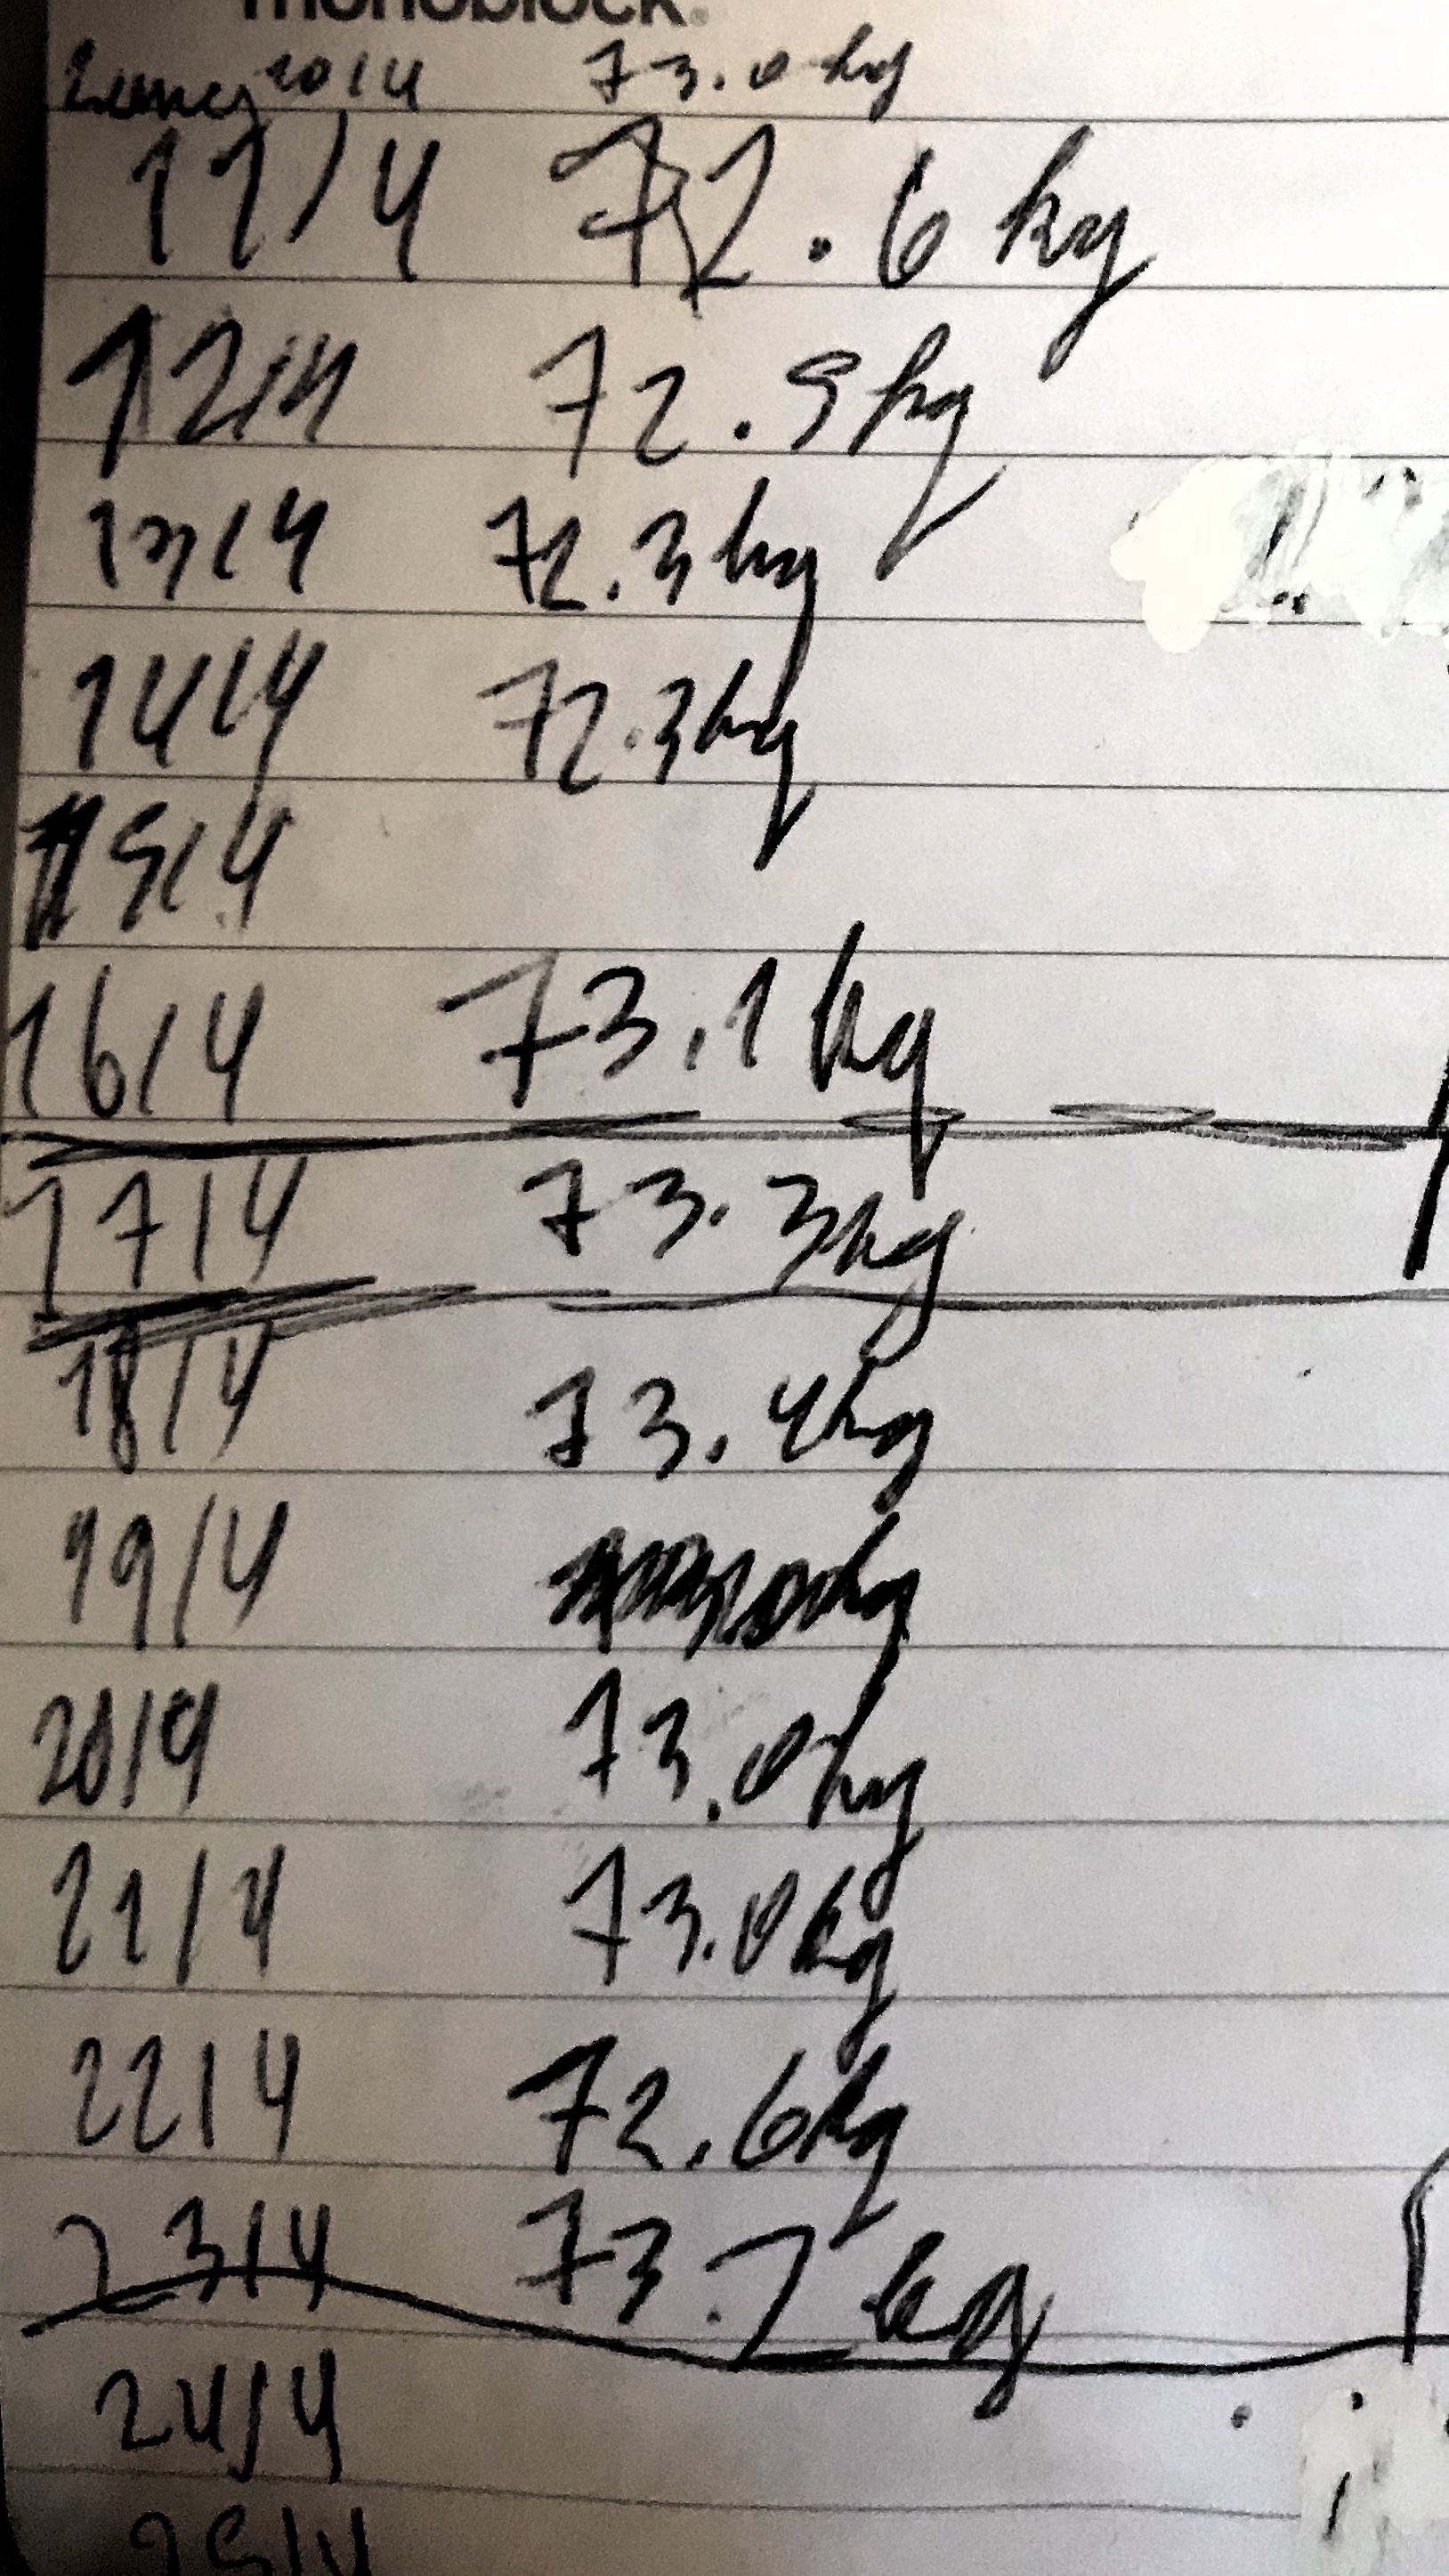 monoblock.
20/4 73.0 kg
11/4 72.6 kg
12/4 72.9 kg
13/4 72.3 kg
14/4 72.3 kg
15/4
16/4 73.1 kg
17/4 73.3 kg
18/4 73.4 kg
19/4
20/4 73.0 kg
21/4 73.0 kg
22/4 72.6 kg
23/4 73.2 kg
24/4
25/4